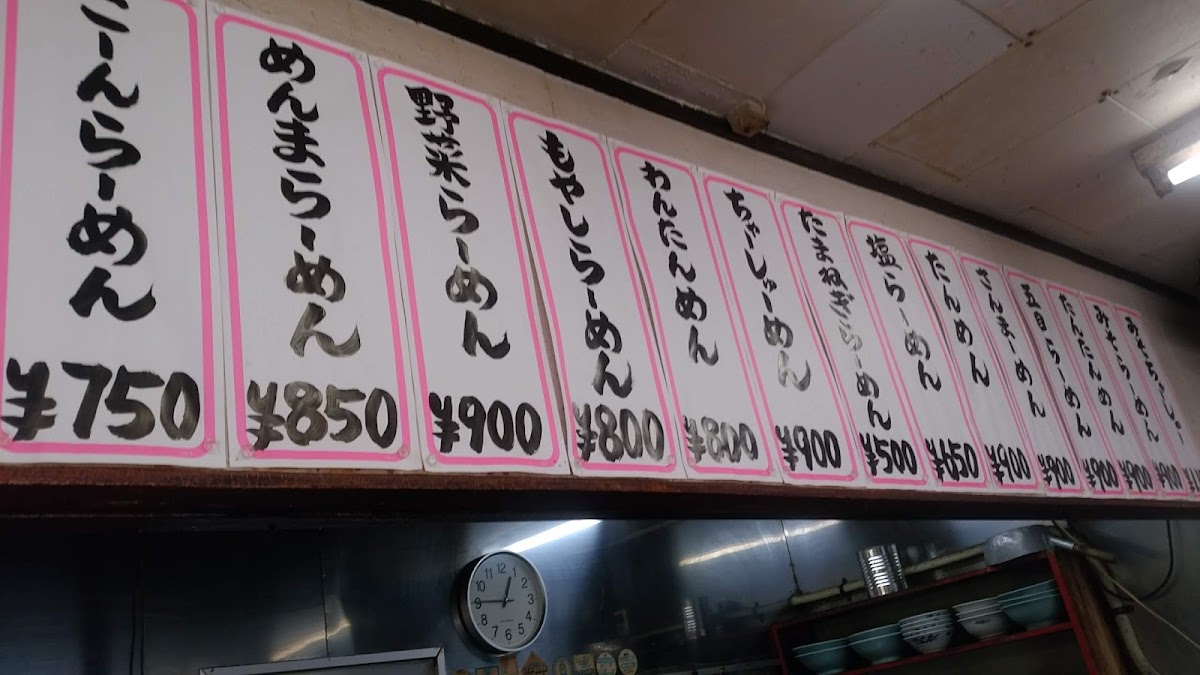 こーんらーめん
¥750
めんまらーめん
¥850
野菜らーめん
¥900
もやしらーめん
¥800
わんたんめん
¥800
ちゃーしゅーめん
¥900
たまねぎらーめん
¥500
塩らーめん
¥650
たんめん
¥900
さんまーめん
¥900
五目らーめん
¥900
たんたんめん
¥900
みそらーめん
¥900
12
1
2
3
4
5
6
7
8
9
10
11